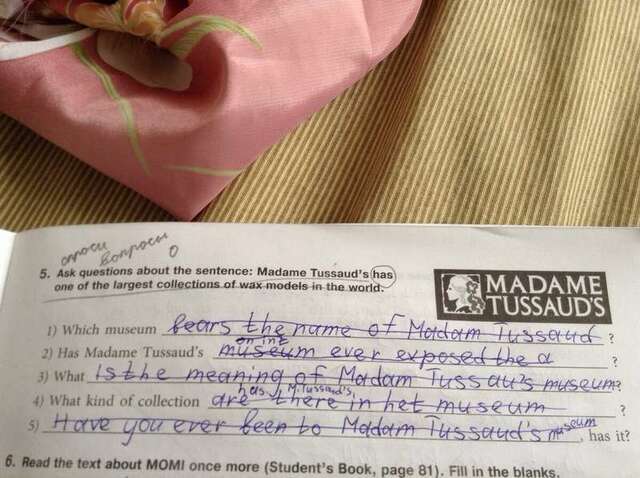 спроси
вопросы
о
5. Ask questions about the sentence: Madame Tussaud's has
one of the largest collections of wax models in the world.
MADAME
TUSSAUD'S
1) Which museum bears the name of Madam Tussaud ?
on int
2) Has Madame Tussaud's museum ever exposed the a ?
3) What is the meaning of Madam Tussau's museum?
has M Tussaud's
4) What kind of collection are there in het museum ?
5) Have you ever been to Madam Tussaud's museum, has it?
6. Read the text about MOMI once more (Student's Book, page 81). Fill in the blanks.